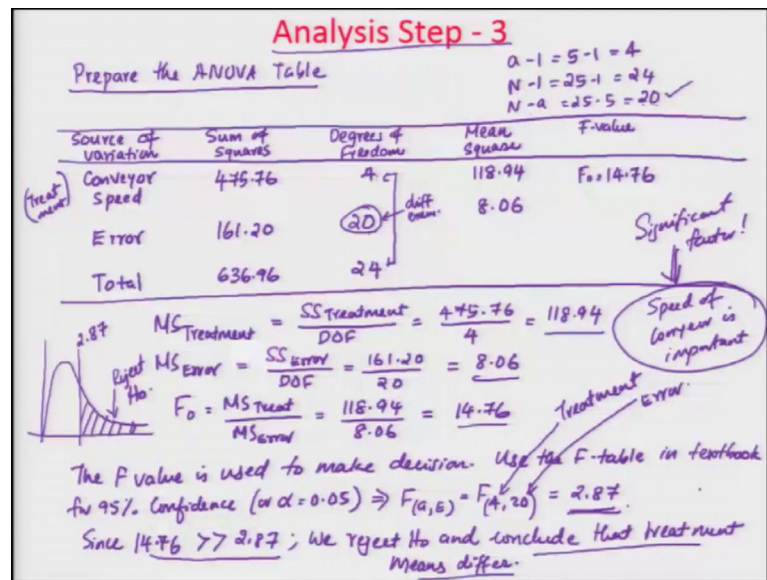 Analysis Step - 3
Prepare the ANOVA Table
a-1 = 5-1 = 4
N-1 = 25-1 = 24
N-a = 25-5 = 20 ✓
Source of variation Sum of Squares Degrees of Freedom Mean Square F-value
(Treatment) Conveyor Speed 475.76 4 118.94 F₀ = 14.76
Error 161.20 20 diff 8.06
Total 636.96 24
Significant factor!
Speed of conveyor is important
MS Treatment = SS Treatment / DOF = 475.76 / 4 = 118.94
2.87
Reject H₀.
MS Error = SS Error / DOF = 161.20 / 20 = 8.06
F₀ = MS Treat / MS Error = 118.94 / 8.06 = 14.76
Treatment Error.
The F value is used to make decision. Use the F-table in textbook
for 95% Confidence (or α = 0.05) ⇒ F(a,E) = F(4,20) = 2.87.
Since 14.76 >> 2.87; we reject H₀ and conclude that treatment
means differ.